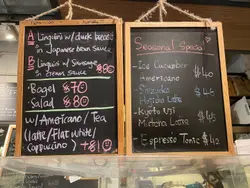 A Linguini w/ duck breast
in Japanese bean sauce
B Linguini w/ Sausage $80
in cream sauce
Bagel $70
Salad $80
w/ Americano / Tea
(latte / Flat white /
Cappuccino) +$8
Seasonal Special
Ice Cucumber
Americano $40
Hojicha Latte $45
Kyoto Uji
Matcha Latte $45
Espresso Tonic $40